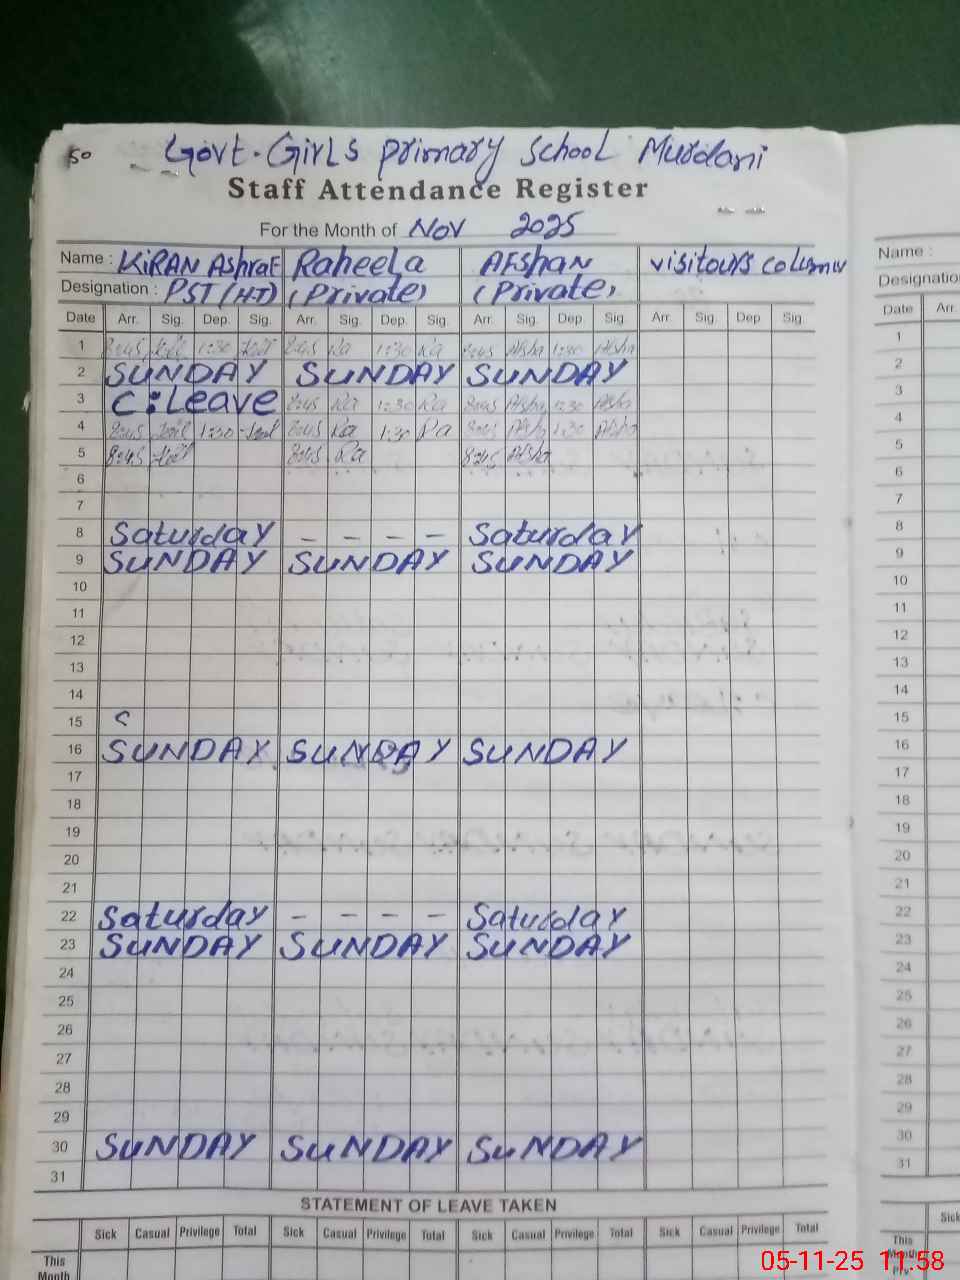 50
Govt. Girls primary school Murdani
Staff Attendance Register
For the Month of Nov 2025
Name : KiRAN AshraF Raheela AFshAN visitours column
Designation : PST (H.T) (Private) (Private)
Date Arr. Sig. Dep. Sig. Arr. Sig. Dep. Sig. Arr. Sig. Dep Sig. Arr. Sig. Dep Sig.
1 8:45 1:30 8:45 Ra 1:30 Ra 8:45 Afsha 1:30 Afsha
2 SUNDAY SUNDAY SUNDAY
3 C:Leave 8:45 Ra 1:30 Ra 8:45 Afsha 1:30 Afsha
4 8:45 1:30 8:45 Ra 1:30 Ra 8:45 Afsha 1:30 Afsha
5 8:45 8:45 Ra 8:45 Afsha
6
7
8 Saturday - - - - Saturday
9 SUNDAY SUNDAY SUNDAY
10
11
12
13
14
15 C
16 SUNDAY SUNDAY SUNDAY
17
18
19
20
21
22 Saturday - - - - Saturday
23 SUNDAY SUNDAY SUNDAY
24
25
26
27
28
29
30 SUNDAY SUNDAY SUNDAY
31
STATEMENT OF LEAVE TAKEN
Sick Casual Privilege Total Sick Casual Privilege Total Sick Casual Privilege Total Sick Casual Privilege Total
This Month
Name :
Designation
Date Arr.
1
2
3
4
5
6
7
8
9
10
11
12
13
14
15
16
17
18
19
20
21
22
23
24
25
26
27
28
29
30
31
Sick
This Month
05-11-25 11:58